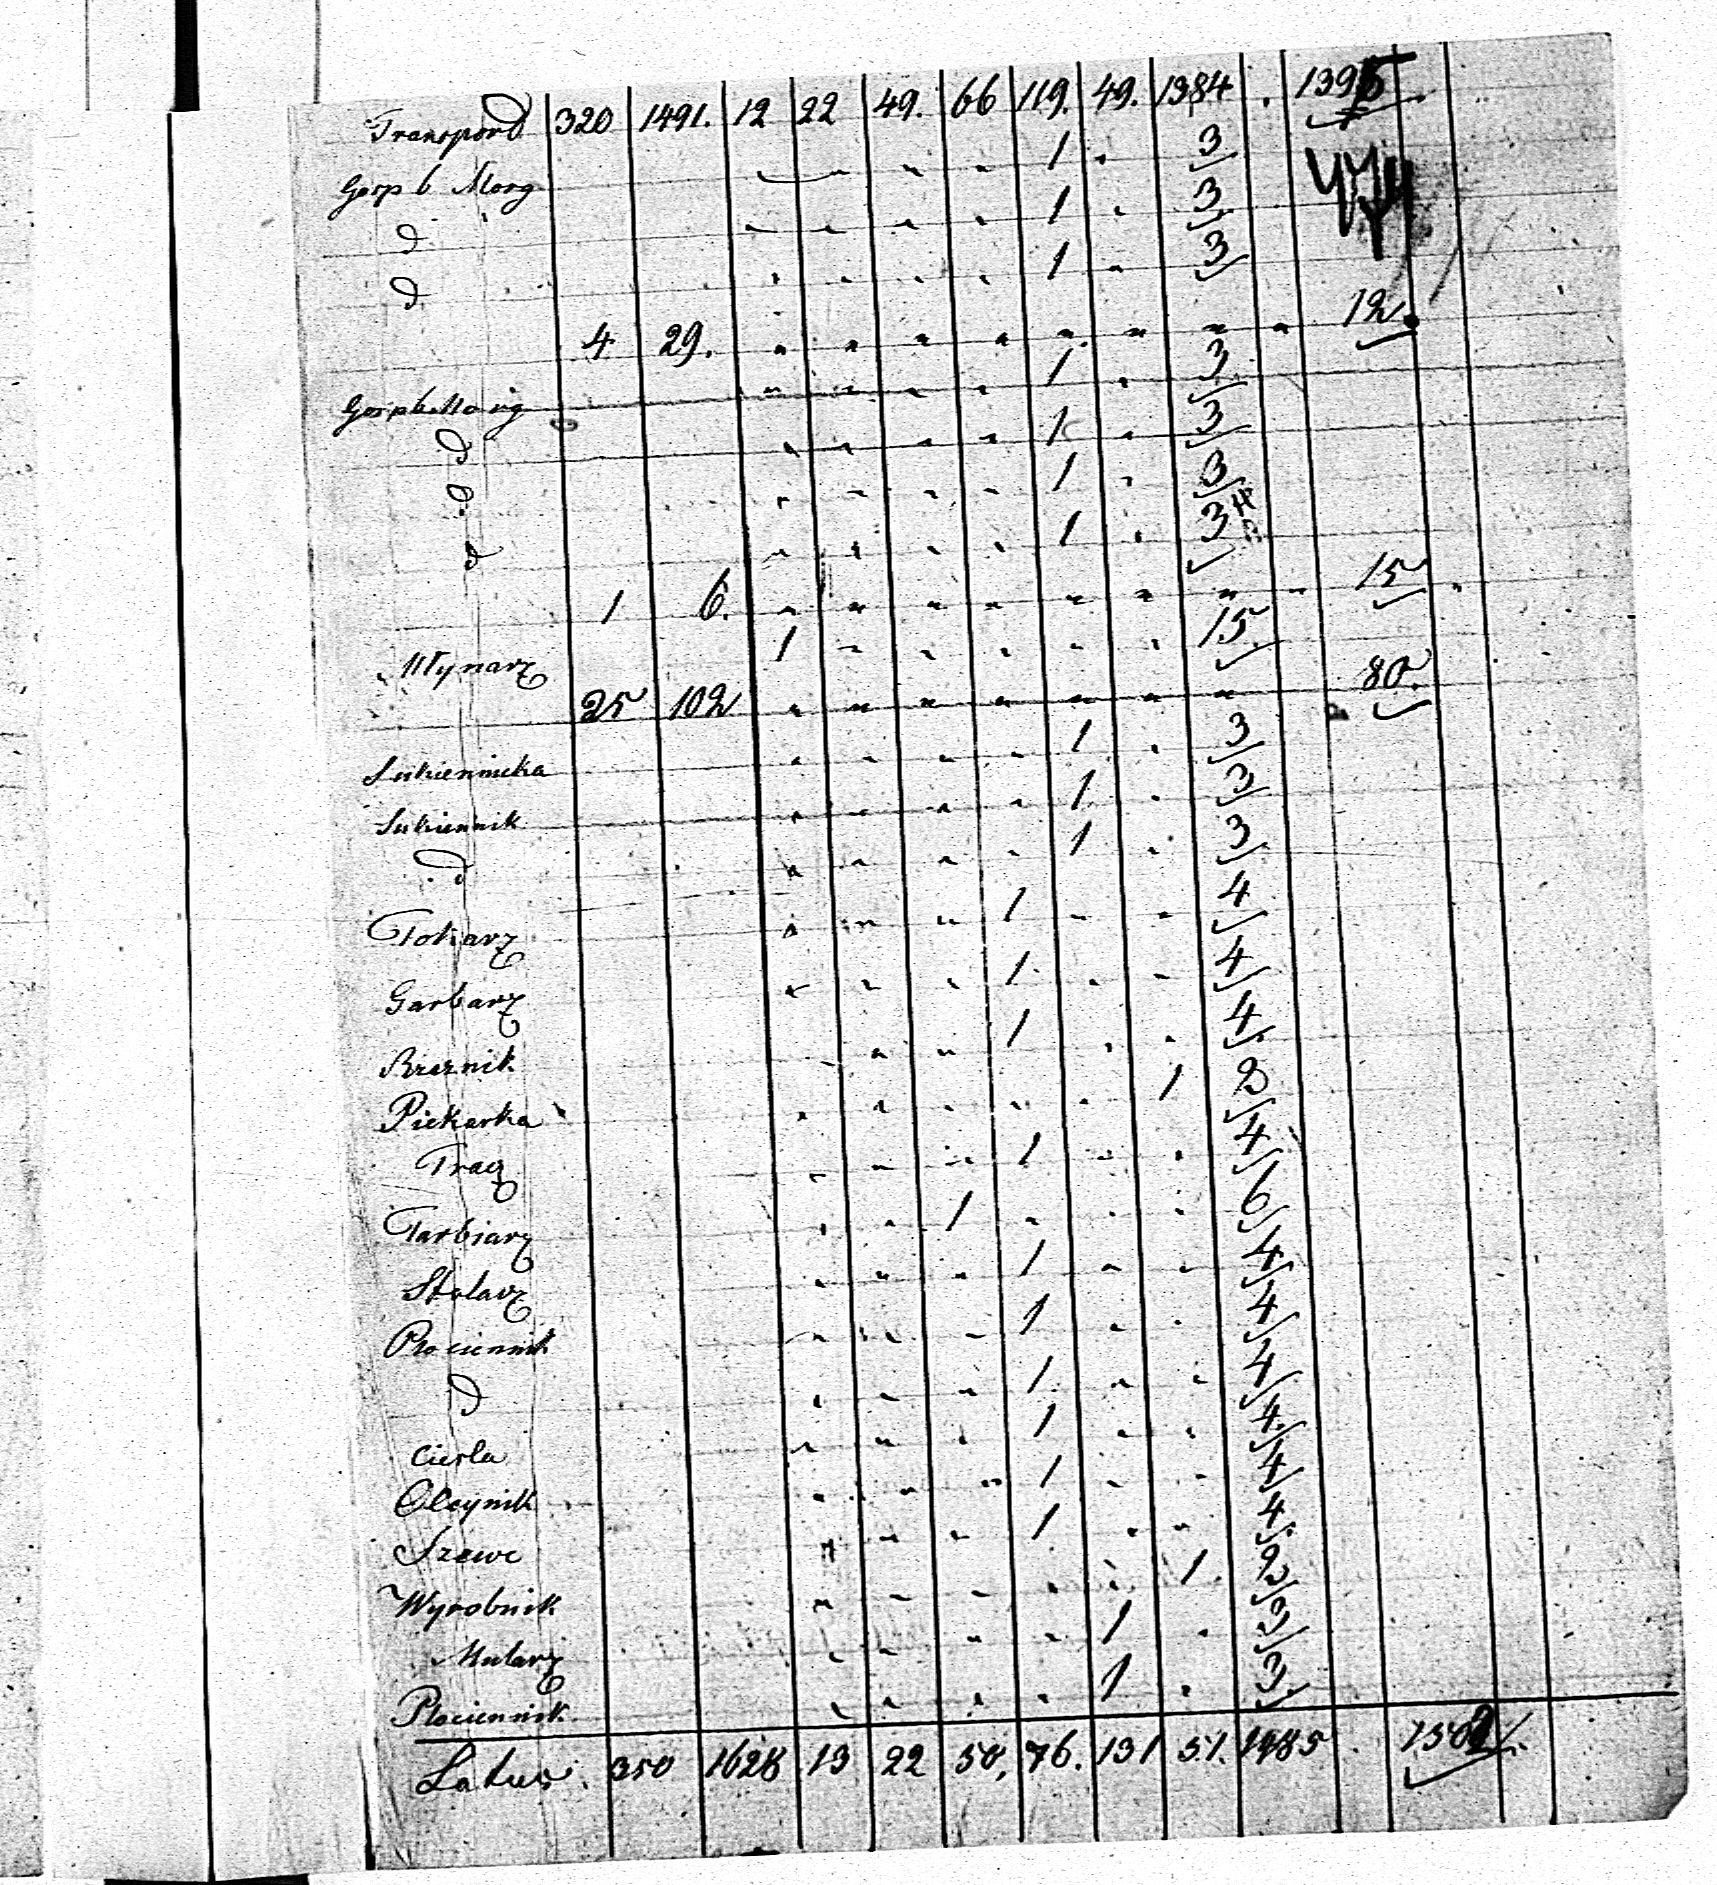 Transport 320 1491. 12 22 49. 66 119. 49. 1384 . 1395
Gosp b Morg " " " " 1 . 3
d " " " " 1 . 3
d " " " " 1 . 3
4 29. " " " " " " " " 12.
Gosp b Morg " " " " 1 . 3
d " " " " 1 . 3
d " " " " 1 . 3
d " " " " 1 . 3
1 6. " " " " " " " " 15
Młynarz 1 " " " " . 15
25 102 " " " " " " " 80.
Sukienniczka " " " " 1 . 3
Sukiennik " " " " 1 . 3
d " " " " 1 . 3
Tokarz " " " 1 " " 4
Garbarz " " " 1 . " 4
Rzeznik " " " 1 . . 4
Piekarka " " " " " 1 2
Tracz " " " 1 " . 4
Farbiarz " " 1 " " " 6
Stolarz " " " 1 " " 4
Płociennik " " " 1 " . 4
d " " " 1 " " 4
Ciesla " " " 1 " " 4
Oleynik " " " 1 " " 4
Szewc " " " 1 " " 4
Wyrobnik " " " " " 1. 2
Mularz " " " " 1 . 3
Płociennik " " " " 1 . 3
Latus. 350 1628 13 22 50, 76. 131 51. 1485 .